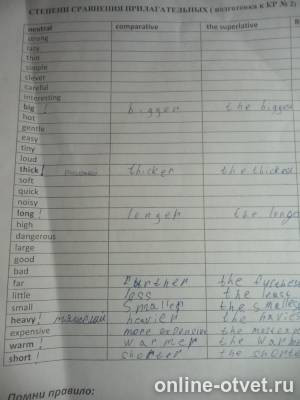 СТЕПЕНИ СРАВНЕНИЯ ПРИЛАГАТЕЛЬНЫХ ( подготовка к КР № 2)
neutral comparative the superlative
strong
lazy
thin
simple
clever
careful
interesting
big ! bigger the bigges
hot
gentle
easy
tiny
loud
thick ! thicker the thickes
soft
quick
noisy
long ! longer the longe
high
dangerous
large
good
bad
far further the furthes
little less the leas
small smaller the smalles
heavy! heavier the heavies
expensive more expensive the most exp
warm ! warmer the warm
short ! shorter the shorte
Помни правило:
online-otvet.ru